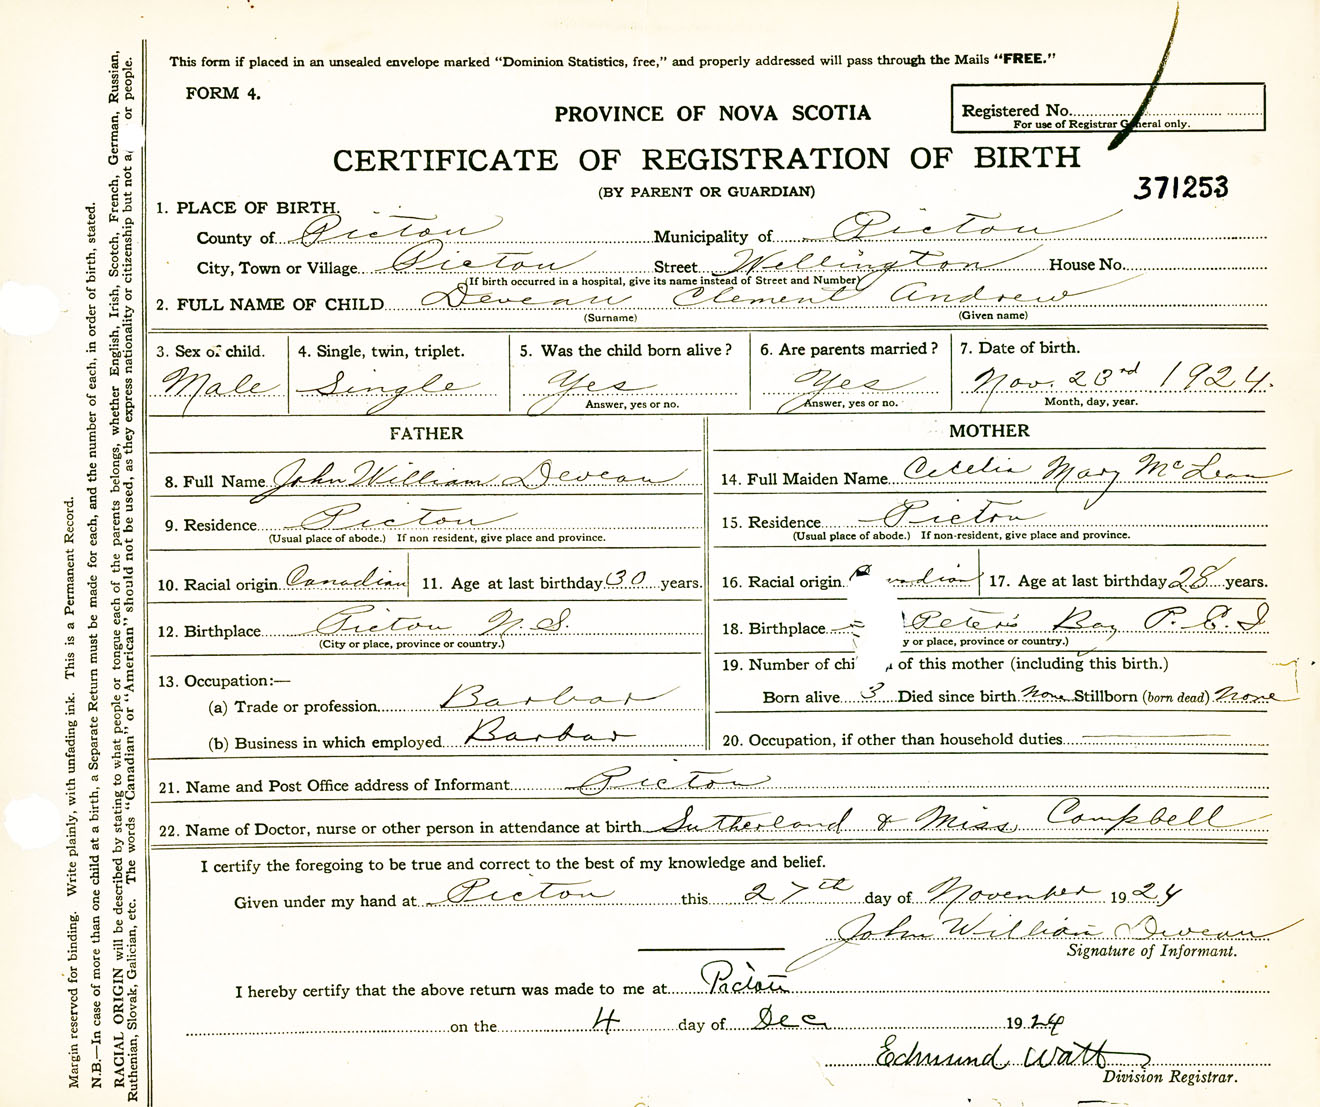 This form if placed in an unsealed envelope marked "Dominion Statistics, free," and properly addressed will pass through the Mails "FREE."
FORM 4.
PROVINCE OF NOVA SCOTIA
Registered No.
For use of Registrar General only.
CERTIFICATE OF REGISTRATION OF BIRTH
(BY PARENT OR GUARDIAN)
371253
1. PLACE OF BIRTH.
County of Picton Municipality of Picton
City, Town or Village Picton Street Wellington House No.
(If birth occurred in a hospital, give its name instead of Street and Number)
2. FULL NAME OF CHILD Deveau Clement Andrew
(Surname) (Given name)
3. Sex of child. 4. Single, twin, triplet. 5. Was the child born alive? 6. Are parents married? 7. Date of birth.
Male Single Yes Yes Nov. 23rd 1924.
Answer, yes or no. Answer, yes or no. Month, day, year.
FATHER MOTHER
8. Full Name John William Deveau 14. Full Maiden Name Cecelia Mary McLean
9. Residence Picton 15. Residence Picton
(Usual place of abode.) If non resident, give place and province. (Usual place of abode.) If non-resident, give place and province.
10. Racial origin Canadian 11. Age at last birthday 30 years. 16. Racial origin nadian 17. Age at last birthday 28 years.
12. Birthplace Picton N.S. 18. Birthplace Peter's Bay P.E.I
(City or place, province or country.) y or place, province or country.)
13. Occupation:— 19. Number of chi of this mother (including this birth.)
(a) Trade or profession Barbar Born alive 3 Died since birth None Stillborn (born dead) None
(b) Business in which employed Barbar 20. Occupation, if other than household duties
21. Name and Post Office address of Informant Picton
22. Name of Doctor, nurse or other person in attendance at birth Sutherland & Miss Campbell
I certify the foregoing to be true and correct to the best of my knowledge and belief.
Given under my hand at Picton this 27th day of November 1924
John William Deveau
Signature of Informant.
I hereby certify that the above return was made to me at Picton
on the 4 day of Dec 1924
Edmund Watt
Division Registrar.
Margin reserved for binding. Write plainly, with unfading ink. This is a Permanent Record.
N.B.—In case of more than one child at a birth, a Separate Return must be made for each, and the number of each, in order of birth, stated.
RACIAL ORIGIN will be described by stating to what people or tongue each of the parents belongs, whether English, Irish, Scotch, French, German, Russian,
Ruthenian, Slovak, Galician, etc. The words "Canadian" or "American" should not be used, as they express nationality or citizenship but not a or people.